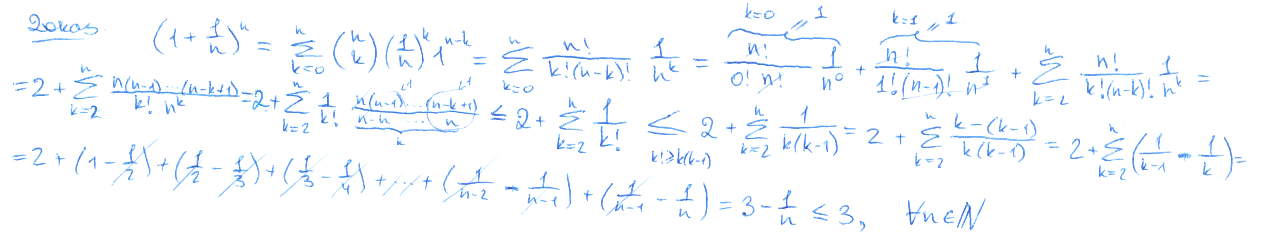 Dokaz. (1+1/n)^n = ∑_{k=0}^{n} (n k) (1/n)^k 1^{n-k} = ∑_{k=0}^{n} n!/(k!(n-k)!) 1/n^k = n!/(0! n!) 1/n^0 (k=0 // 1) + n!/(1!(n-1)!) 1/n^1 (k=1 // 1) + ∑_{k=2}^{n} n!/(k!(n-k)!) 1/n^k =
= 2 + ∑_{k=2}^{n} n(n-1)...(n-k+1)/(k! n^k) = 2 + ∑_{k=2}^{n} 1/k! n(n-1)...(n-k+1)/(n·n...n) (k) ≤ 2 + ∑_{k=2}^{n} 1/k! ≤ (k! ≥ k(k-1)) 2 + ∑_{k=2}^{n} 1/(k(k-1)) = 2 + ∑_{k=2}^{n} (k-(k-1))/(k(k-1)) = 2 + ∑_{k=2}^{n} (1/(k-1) - 1/k) =
= 2 + (1 - 1/2) + (1/2 - 1/3) + (1/3 - 1/4) + ... + (1/(n-2) - 1/(n-1)) + (1/(n-1) - 1/n) = 3 - 1/n ≤ 3, ∀n∈ℕ